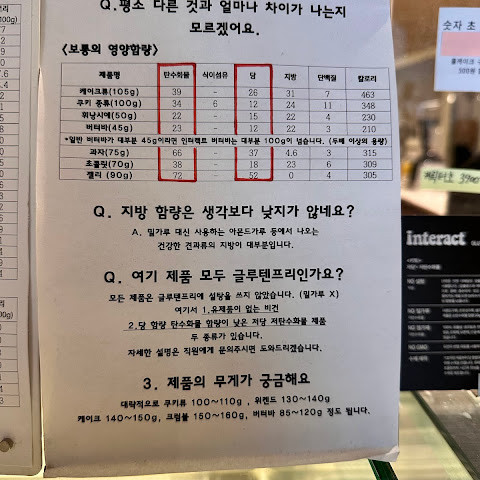 Q.평소 다른 것과 얼마나 차이가 나는지
모르겠어요.
<보통의 영양함량>
제품명 탄수화물 식이섬유 당 지방 단백질 칼로리
케이크류(105g) 39 - 26 31 7 463
쿠키 종류(100g) 34 6 12 24 11 348
휘낭시에(50g) 22 - 15 22 4 300
버터바(45g) 23 - 12 22 3 210
*일반 버터바가 대부분 45g이라면 인터렉트 버터바는 대부분 100g이 넘습니다. (두배 이상의 용량)
과자(75g) 66 - 37 4.6 3 315
초콜릿(70g) 38 - 18 23 6 309
젤리 (90g) 72 - 52 0 4 305
Q. 지방 함량은 생각보다 낮지가 않네요?
A. 밀가루 대신 사용하는 아몬드가루 등에서 나오는
건강한 견과류의 지방이 대부분입니다.
Q. 여기 제품 모두 글루텐프리인가요?
모든 제품은 글루텐프리에 설탕을 쓰지 않았습니다. (밀가루 X)
여기서 1.유제품이 없는 비건
2.당 함량 탄수화물 함량이 낮은 저당 저탄수화물 제품
두 종류가 있습니다.
자세한 설명은 직원에게 문의주시면 도와드리겠습니다.
3. 제품의 무게가 궁금해요
대략적으로 쿠키류 100~110g , 휘켄드 130~140g
케이크 140~150g, 크럼블 150~160g, 버터바 85~120g 정도 됩니다.
숫자 초
interact